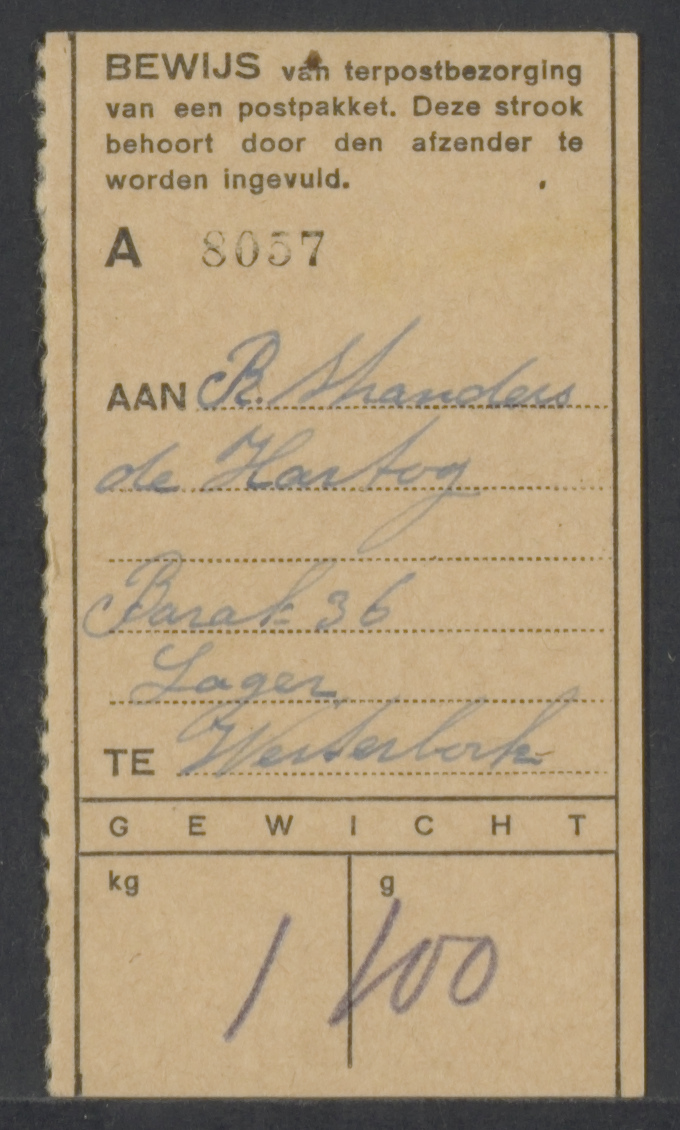 BEWIJS van terpostbezorging
van een postpakket. Deze strook
behoort door den afzender te
worden ingevuld.
A 8057
AAN R. Shanders
de Hartog
Barak 36
Lager
TE Westerbork
GEWICHT
kg g
1 100